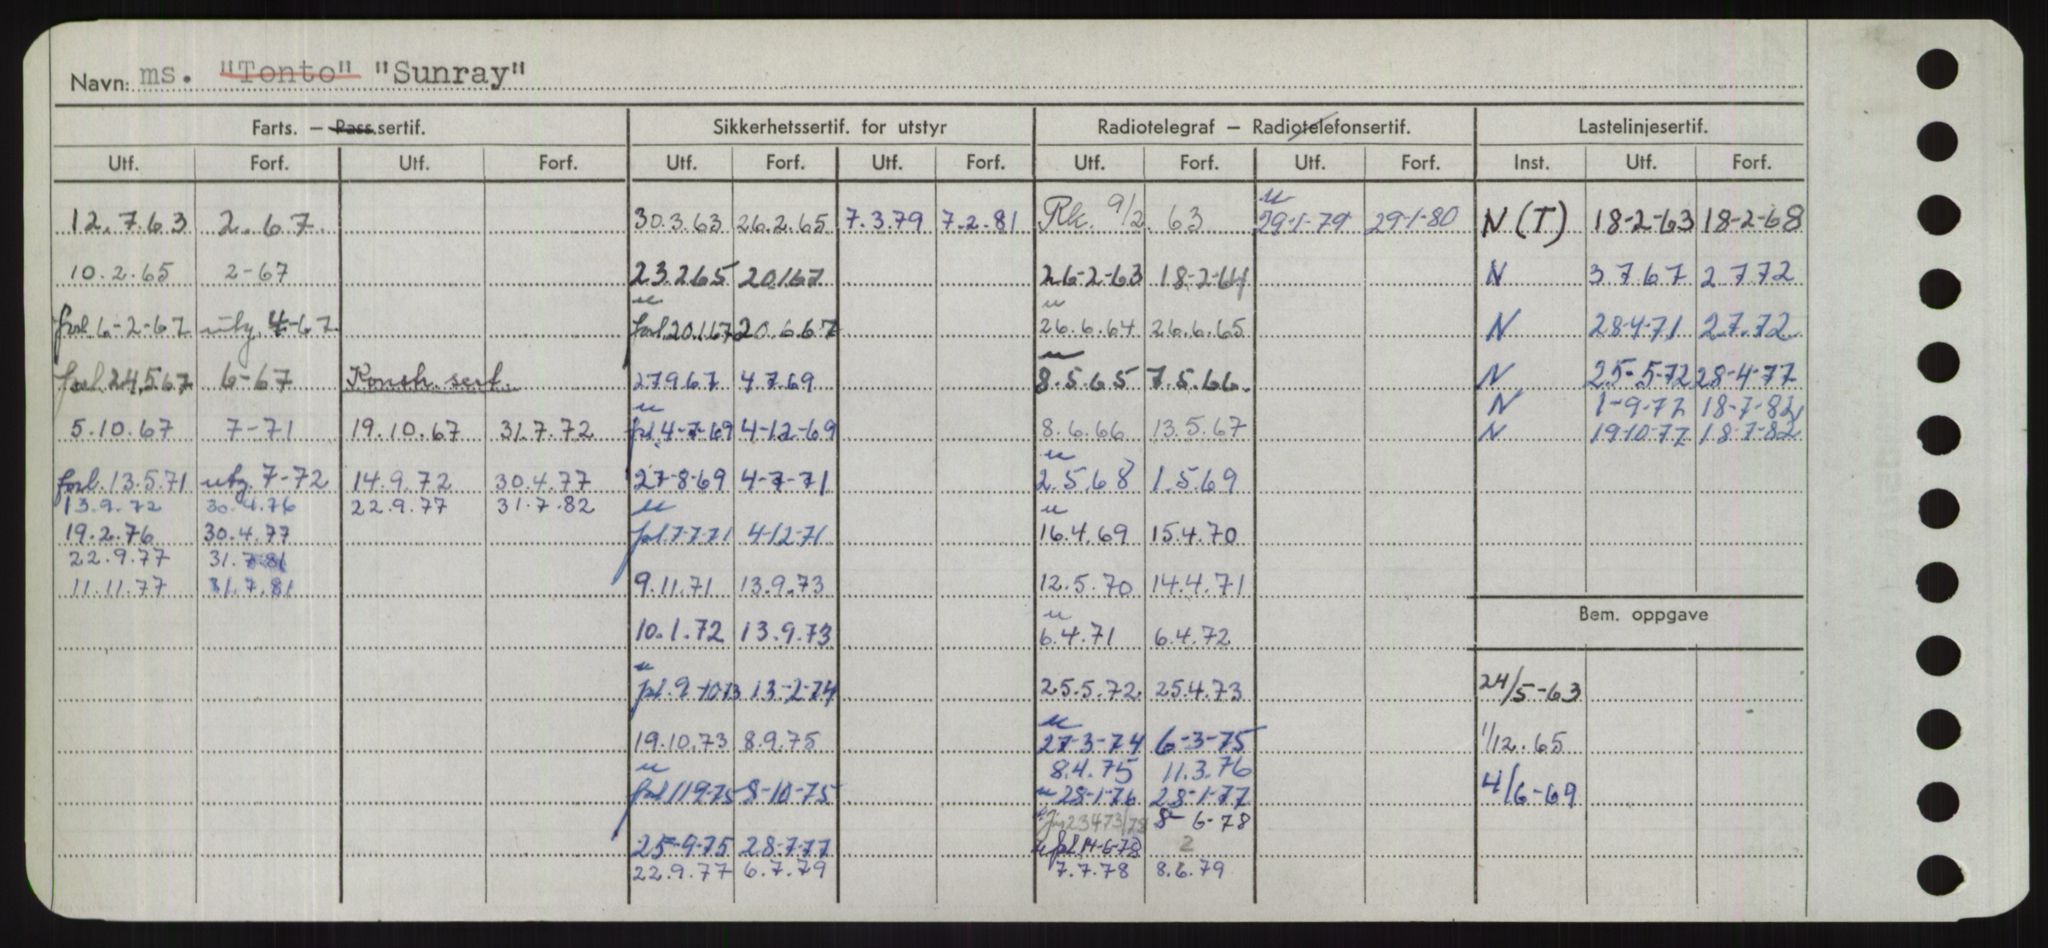 Navn: ms. "Tonto" "Sunray"
Farts. – Pass.sertif. Sikkerhetssertif. for utstyr Radiotelegraf – Radiotelefonsertif. Lastelinjesertif.
Utf. Forf. Utf. Forf. Utf. Forf. Utf. Forf. Utf. Forf. Utf. Forf. Inst. Utf. Forf.
12.7.63 2.67. 30.3.63 26.2.65 7.3.79 7.2.81 Rk. 9/2. 63 u 29-1-79 29-1-80 N (T) 18-2-63 18-2-68
10.2.65 2-67 23.2.65 20.1.67 26-2-63 18-2-64 N 3.7.67 2.7.72
forl. 6-2-67 utg. 4-67 u forl. 20.1.67 20.6.67 u 26.6.64 26.6.65 N 28-4-71 2.7.72
forl. 24.5.67 6-67 Konstr. sert. 27.9.67 4.7.69 u 8.5.65 7.5.66. N 25-5-72 28-4-77
N 1-9-77 18-7-82
5.10.67 7-71 19.10.67 31.7.72 u forl. 4-7-69 4-12-69 8.6.66 13.5.67 N 19-10-77 18-7-82
forl. 13.5.71 utg. 7-72 14.9.72 30.4.77 27-8-69 4-7-71 u 2.5.68 1.5.69
13.9.72 30.4.76 22.9.77 31.7.82
19.2.76 30.4.77 u forl 7-7-71 4-12-71 u 16.4.69 15.4.70
22.9.77 31.7.81
11.11.77 31.7.81 9.11.71 13.9.73 12.5.70 14.4.71
Bem. oppgave
10.1.72 13.9.73 u 6.4.71 6.4.72
u forl. 9-10-73 13-2-74 25.5.72 25.4.73 24/5-63
19.10.73 8.9.75 u 27-3-74 6-3-75 1/12.65
8.4.75 11.3.76
u forl 11-9-75 8-10-75 u 28-1-76 28-1-77 4/6-69
23473/78 8-6-78
25-9-75 28-7-77 u fol 14-6-78 2
22.9.77 6.7.79 7.7.78 8.6.79